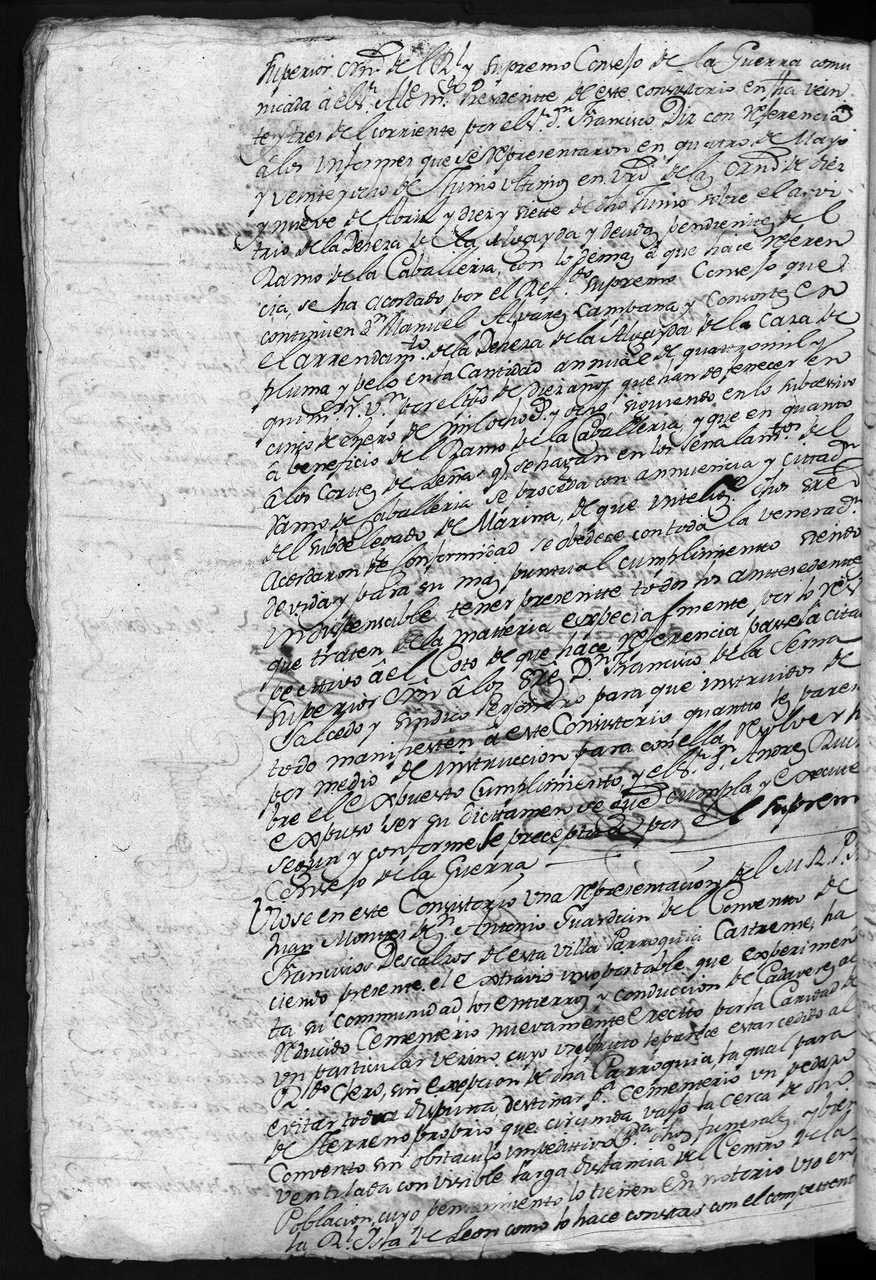 Superior orn. de el Rl. y Supremo Consejo de la Guerra comu
nicada â el Sr. Alce. mor. Presidentte de este Consistorio en fha vein
te y tres del corriente por el Sr. Dn. Francisco Diz con rreferencia
â los Informes que se rrepresentaron en quatro de Mayo
y veinte y ocho de Junio ultimos en vrd. de las ornes. de diez
y nueve de Abril y diez y siette de dho Junio sobre el arvi
trio de la Deheza de la Alvayda y deudas pendientes del
Ramo de la Caballeria, con lo demas â que hace rreferen
cia, se ha acordado por el Refdo. Supremo Consejo que
continuen Dn. Manuel Alvarez Campana y Consortes en
el arrendamto. de la Deheza de la Alvayda de la Caza de
pluma y pelo en la Cantidad annual de quattro mil y
quintos. rs. vn. por el tiempo de diez años que han de fenecer en
cinco de Enero de mil ochos. y ocho, siguiendo en lo subcesivo
â beneficio del Ramo de la Caballeria, y que en quanto
â los Cortes de Leña q. se hagan en los señalamtos. del
Ramo de Caballeria se proceda con annuencia y cittasn.
del Subdelegado de Marina, de que inteligs. dhos Sres.
Acordaron de conformidad se obedece con toda la venerasn.
devida y para su mas puntual cumplimiento siendo
indispensable tener presentte todos los anttesedentes
que traten de la matteria expecialmente por lo res
pectivo â el Coto de que hace rreferencia passe la citada
Superior orn. â los Sres. Dn. Francisco de la Serna
Salcedo y Sindico Personero para que instruidos de
todo manifiesten â este Consistorio quanto les paresca
por medio de instruccion para con ella resolver so
bre el expuesto Cumplimiento, y el Sr. Dn. Andres Ruiz
expuso ser su dictamen se gue. cumpla y execute
segun y conforme se preceptua por el Supremo
Consejo de la Guerra
Viose en este Consistorio una rrepresentacion del M. R. P. Fr.
Juan Montes de Sn. Antonio Guardian del Convento de
Francisos. Descalzos de esta Villa Parroquia Castrense, ha
ciendo presente el extravio insoportable que experimen
ta su communidad los entierros y conduccion de Cadaveres al
rreducido Cementerio nuevamente erecto por la Caridad de
un particular vezino cuyo vsufruto le parece estar cedido al
Rbdo. Clero, sin exepcion de dha Parroquia la qual para
evitar toda disputa, destinar pa. Cementerio un pedazo
de Sterreno proprio que circunda vajo la cerca de dho
Convento sin obstaculo impedittivo pa. dhos funerales y bien
ventilada con visible larga distancia del Centro de la
Poblacion, cuyo pensamiento lo tienen en notorio vso en
la Rl. Isla de Leon como lo hace constar con el competente